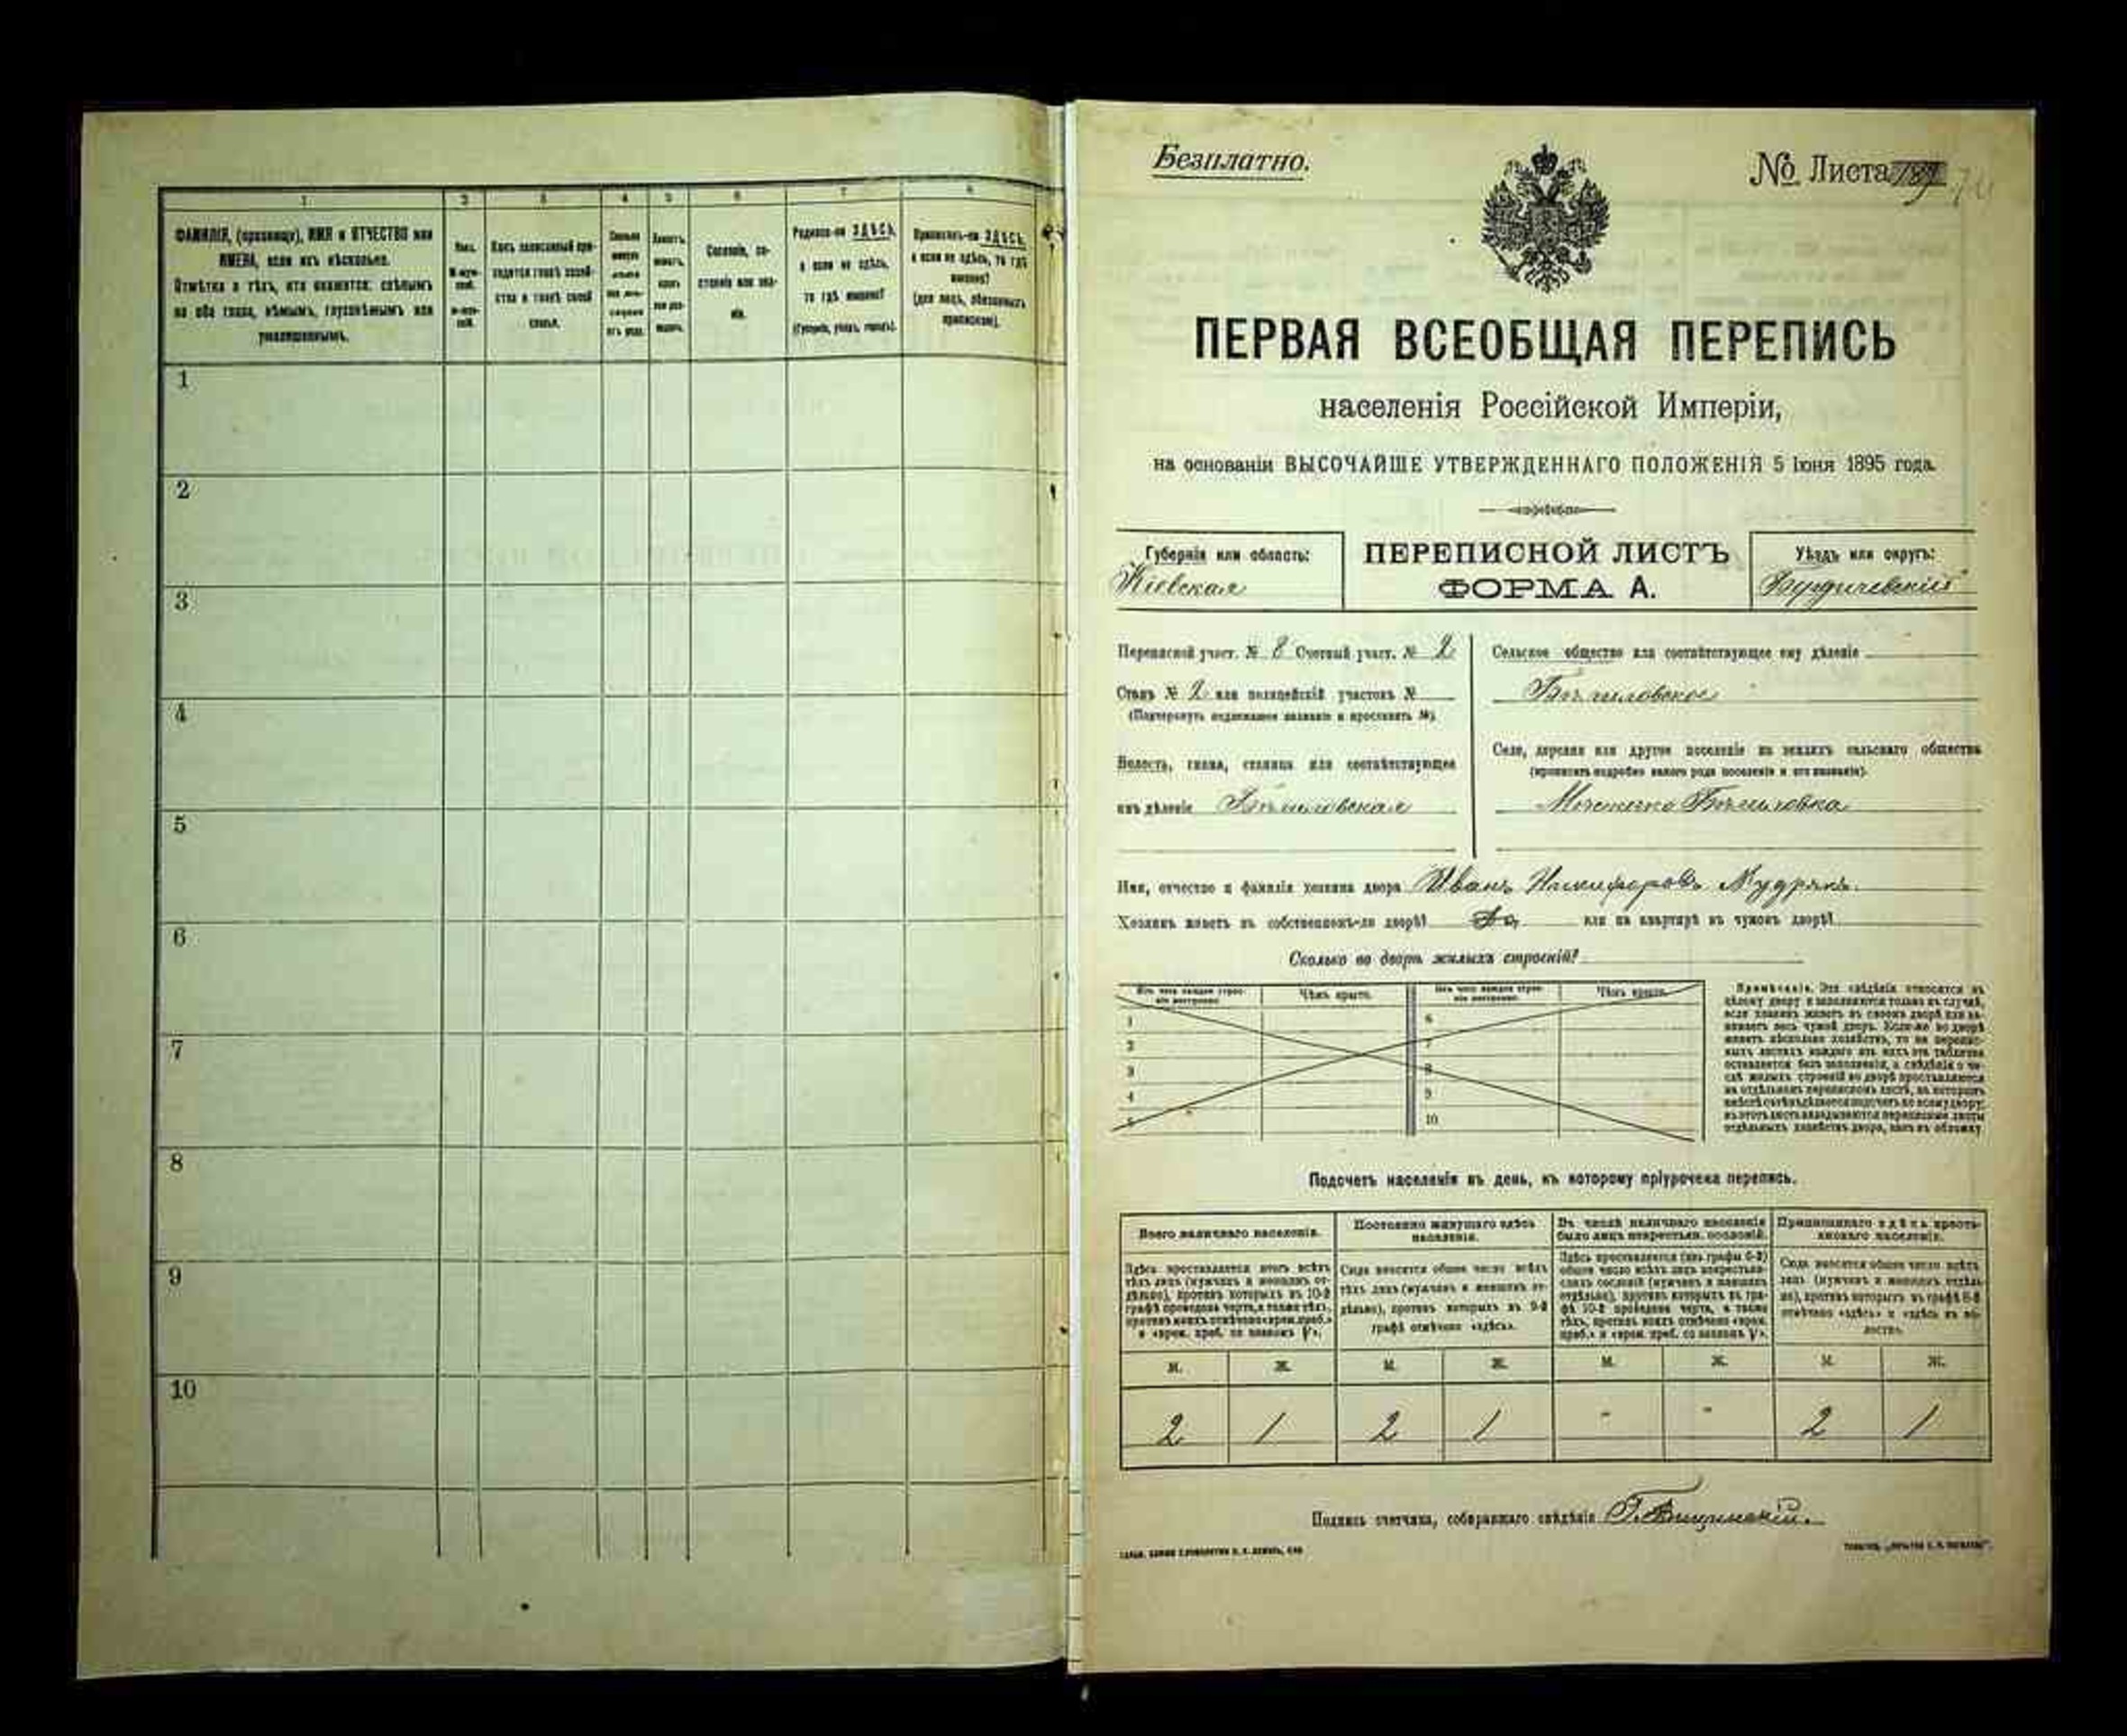 1 2 3 4 5 6 7 8
ФАМИЛІЯ, (прозвище), ИМЯ и ОТЧЕСТВО или
ИМЕНА, если ихъ нѣсколько.
Отмѣтка о тѣхъ, кто окажется: слѣпымъ
на оба глаза, нѣмымъ, глухонѣмымъ или
умалишеннымъ.
Полъ.
М-муж-
ской.
Ж-жен-
скій.
Какъ записанный при-
ходится главѣ хозяй-
ства и главѣ своей
семьи.
Сословіе, со-
стояніе или зва-
ніе.
Родился-ли ЗДѢСЬ,
а если не здѣсь,
то гдѣ именно?
(Губернія, уѣздъ, городъ).
Приписанъ-ли ЗДѢСЬ,
а если не здѣсь, то гдѣ
именно?
(для лицъ, обязанныхъ
припискою).
1
2
3
4
5
6
7
8
9
10
Безплатно.
№ Листа 189
ПЕРВАЯ ВСЕОБЩАЯ ПЕРЕПИСЬ
населенія Россійской Имперіи,
на основаніи ВЫСОЧАЙШЕ УТВЕРЖДЕННАГО ПОЛОЖЕНІЯ 5 Іюня 1895 года.
Губернія или область:
Кіевская
ПЕРЕПИСНОЙ ЛИСТЪ
ФОРМА А.
Уѣздъ или округъ:
Бердичевскій
Переписной участ. № 8 Счетный участ. № 2
Станъ № 2 или полицейскій участокъ №
(Подчеркнуть подлежащее названіе и проставить №).
Волость, гмина, станица или соотвѣтствующее
имъ дѣленіе Бѣлиловская
Сельское общество или соотвѣтствующее ему дѣленіе
Бѣлиловское
Село, деревня или другое поселеніе на земляхъ сельскаго общества
(прописать подробно какого рода поселеніе и его названіе).
Мѣстечко Бѣлиловка
Имя, отчество и фамилія хозяина двора Иванъ Никифоровъ Кудрякъ.
Хозяинъ живетъ въ собственномъ-ли дворѣ? Да или на квартирѣ въ чужомъ дворѣ?
Сколько во дворѣ жилыхъ строеній?
Изъ чего каждое строе-
ніе построено.
Чѣмъ крыто.
Изъ чего каждое строе-
ніе построено.
Чѣмъ крыто.
1
2
3
4
5
6
7
8
9
10
Примѣчаніе. Эти свѣдѣнія относятся къ
цѣлому двору и заполняются только въ случаѣ,
если хозяинъ живетъ въ своемъ дворѣ или за-
нимаетъ весь чужой дворъ. Если-же во дворѣ
живетъ нѣсколько хозяйствъ, то на перепис-
ныхъ листахъ каждаго изъ нихъ эта таблица
оставляется безъ заполненія, а свѣдѣнія о чи-
слѣ жилыхъ строеній во дворѣ проставляются
на отдѣльномъ переписномъ листѣ, на которомъ
вмѣстѣ съ тѣмъ дѣлается подсчетъ по всему двору;
въ этотъ листъ вкладываются переписные листы
отдѣльныхъ хозяйствъ двора, какъ въ обложку.
Подсчетъ населенія въ день, къ которому пріурочена перепись.
Всего наличнаго населенія.
Постоянно живущаго здѣсь
населенія.
Въ числѣ наличнаго населенія
было лицъ некрестьян. сословій.
Приписаннаго здѣсь кресть-
янскаго населенія.
Здѣсь проставляется итогъ всѣхъ
тѣхъ лицъ (мужчинъ и женщинъ от-
дѣльно), противъ которыхъ въ 10-й
графѣ проведена черта, а также тѣхъ,
противъ коихъ отмѣчено «врем. преб.»
и «врем. преб. со знакомъ V».
Сюда вносится общее число всѣхъ
тѣхъ лицъ (мужчинъ и женщинъ от-
дѣльно), противъ которыхъ въ 9-й
графѣ отмѣчено «здѣсь».
Здѣсь проставляется (изъ графы 6-й)
общее число всѣхъ лицъ некрестьян-
скихъ сословій (мужчинъ и женщинъ
отдѣльно), противъ которыхъ въ гра-
фѣ 10-й проведена черта, а также
тѣхъ, противъ коихъ отмѣчено «врем.
преб.» и «врем. преб. со знакомъ V».
Сюда вносится общее число всѣхъ
лицъ (мужчинъ и женщинъ отдѣль-
но), противъ которыхъ въ графѣ 8-й
отмѣчено «здѣсь» и «здѣсь въ во-
лости».
М. Ж. М. Ж. М. Ж. М. Ж.
2 1 2 1 " " 2 1
Подпись счетчика, собиравшаго свѣдѣнія